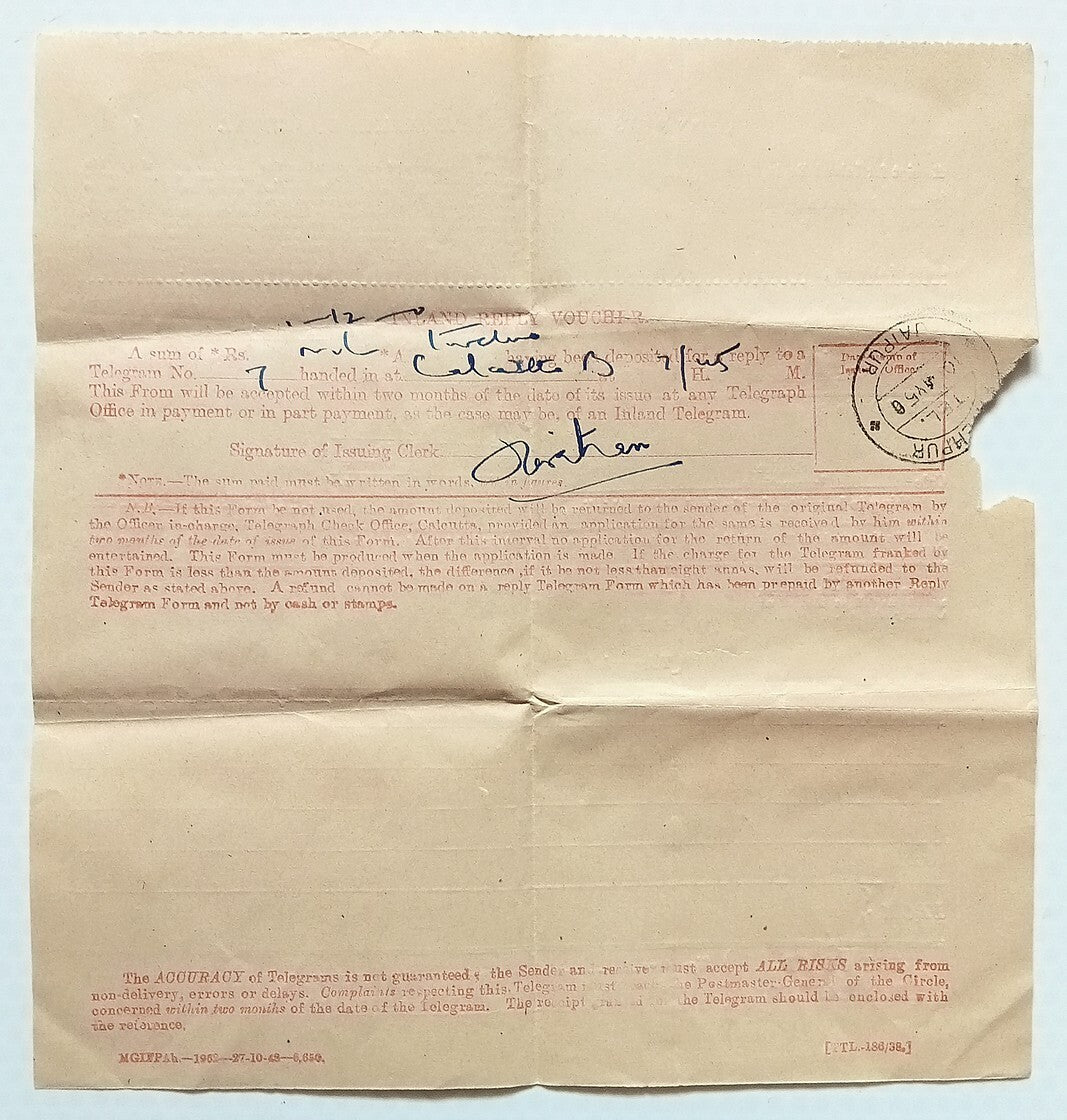 INLAND REPLY VOUCHER.
A sum of *Rs. nil *A Twelve having been deposited for a reply to a
Telegram No. 7 handed in at Calcutta B 7/45 H. M.
This From will be accepted within two months of the date of its issue at any Telegraph
Office in payment or in part payment, as the case may be, of an Inland Telegram.
Signature of Issuing Clerk
*NOTE.—The sum paid must be written in words, in figures.
Office
JAIPUR
TEL.
N.B.—If this Form be not used, the amount deposited will be returned to the sender of the original Telegram by
the Officer in-charge, Telegraph Check Office, Calcutta, provided an application for the same is received by him within
two months of the date of issue of this Form. After this interval no application for the return of the amount will be
entertained. This Form must be produced when the application is made If the charge for the Telegram franked by
this Form is less than the amount deposited, the difference, if it be not less than eight annas, will be refunded to the
Sender as stated above. A refund cannot be made on a reply Telegram Form which has been prepaid by another Reply
Telegram Form and not by cash or stamps.
The ACCURACY of Telegrams is not guaranteed the Sender and receiver must accept ALL RISKS arising from
non-delivery, errors or delays. Complaints respecting this Telegram must reach the Postmaster-General of the Circle,
concerned within two months of the date of the Telegram. The receipt the Telegram should be enclosed with
the reference.
MGIFPAh.—1962—27-10-48—6,650.
[TTL.-186/38.]